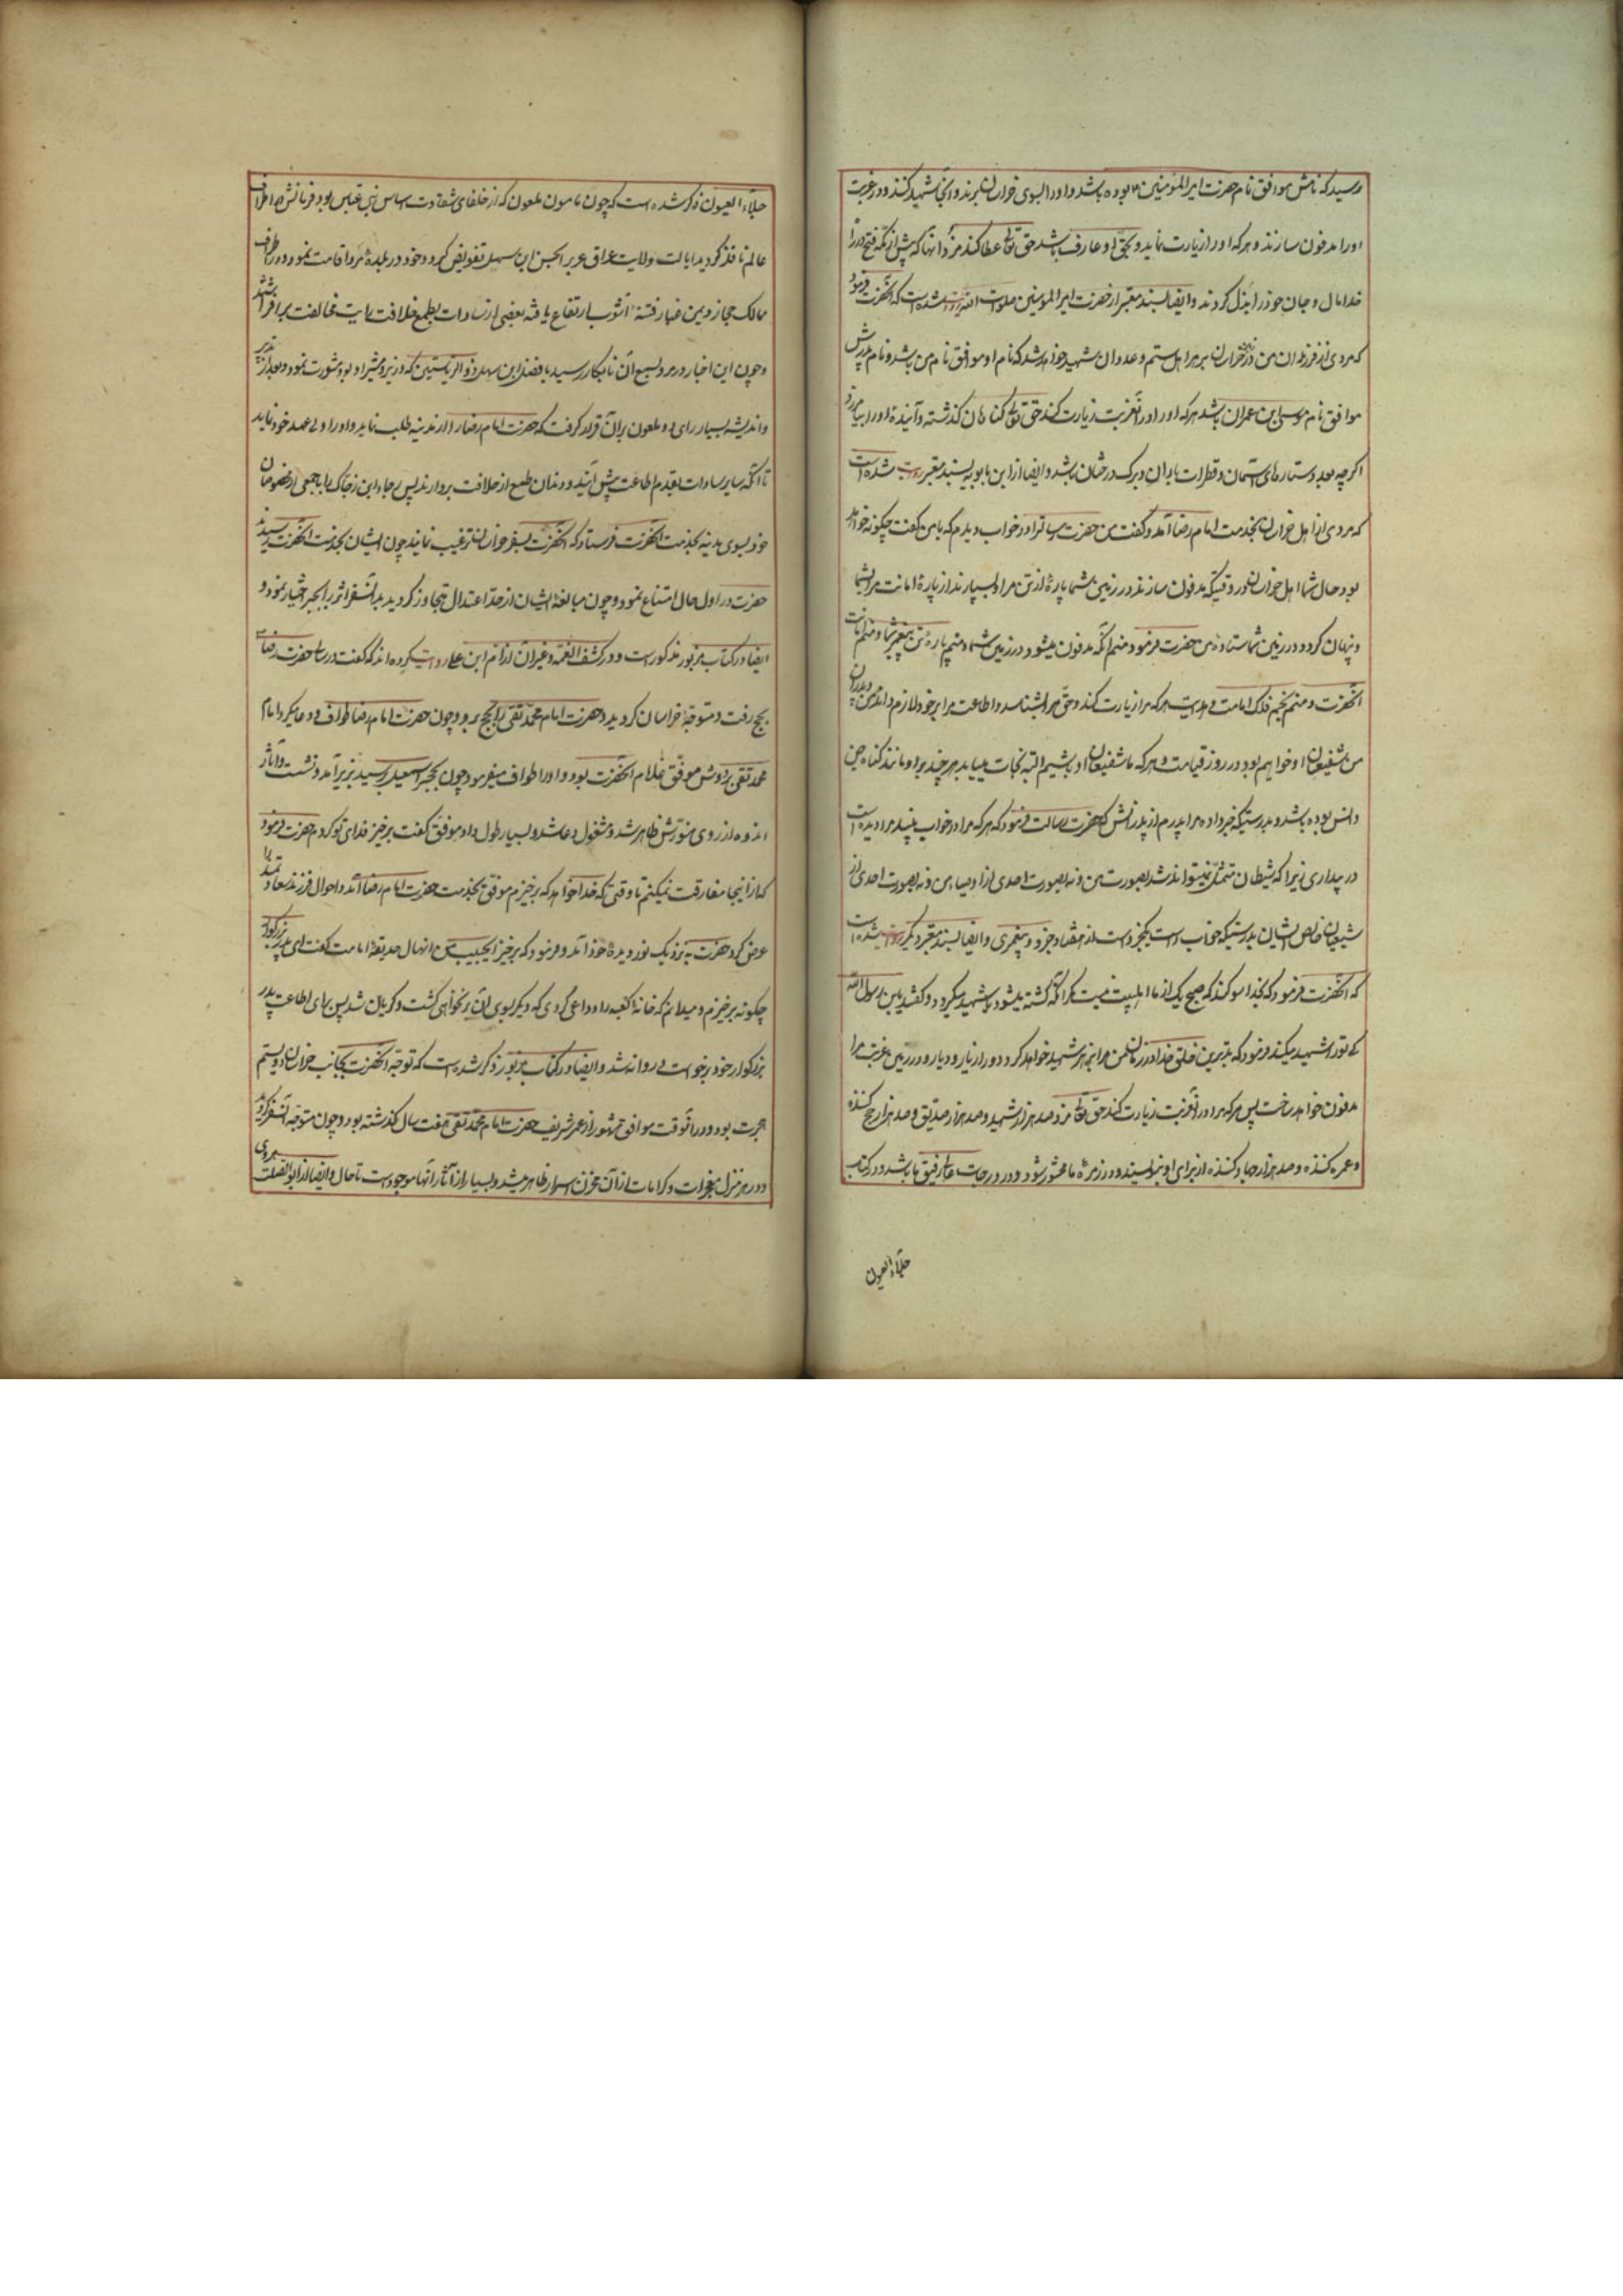 رسید که نامش موافق نام حضرت امیر المؤمنین بوده باشد و او را بسوی خراسان برند و آنجا شهید کنند و در غربت
او را مدفون سازند و هر که او را زیارت نماید و بحق او عارف باشد حق تعالی عطا کند مزد آنها که پیش از مکه فتح در راه
خدا مال و جان خود را بذل کردند و ایضا بسند معتبر از حضرت امیر المومنین صلوات الله روایت شده است که آنحضرت فرمود
که مردی از فرزندان من در خراسان بزهر اهل ستم و عدوان شهید خواهد شد که نام او موافق نام من باشد و نام پدرش
موافق نام موسی ابن عمران باشد هر که او را در آن غربت زیارت کند حق تعالی گناهان گذشته و آینده او را بیامرزد
اگر چه بعدد ستاره های آسمان و قطرات باران و برک درختان باشد و ایضا از ابن بابویه بسند معتبر روایت شده است
که مردی از اهل خراسان بخدمت امام رضا آمد و گفت من حضرت رسالت را در خواب دیدم که با من گفت چگونه خواهد
بود حال شما اهل خراسان در وقتیکه مدفون سازند در زمین شما پاره از تن مرا و بسپارند از پاره امانت مرا بشما
و پنهان گردد در زمین شما ستاره من حضرت فرمود منم آنکه مدفون میشود در زمین شما و منم پاره تن پیغمبر شما و منم امانت
آنحضرت و منم نجم فلک امامت و هدایت هر که مرا زیارت کند و حق مرا بشناسد و اطاعت مرا بر خود لازم داند من و پدران
من شفیعان او خواهیم بود در روز قیامت و هر که ما شفیعان او باشیم البته نجات مییابد هر چند بر او مانند گناه جن
و انس بوده باشد و بدرستیکه خبر داد مرا پدرم از پدرانش که حضرت رسالت فرمود که هر که مرا در خواب ببیند مرا دیده است
در بیداری زیرا که شیطان متمثل نمیتواند شد بصورت من و نه بصورت احدی از اوصیاء من و نه بصورت احدی از
شیعیان خالص ایشان بدرستیکه خواب راست یکجزو است از هفتاد جزو پیغمبری و ایضا بسند معتبر دیگر روایت شده است
که آنحضرت فرمود که بخدا سوگند که هیچ یک از ما اهلبیت نیست مگر آنکه کشته میشود یا شهید میگردد گفتند یابن رسول الله
که تو را شهید میکند فرمود که بدترین خلق خدا در زمان من مرا بزهر شهید خواهد کرد و دور از یار و دیار و در زمین غربت مرا
مدفون خواهد ساخت پس هر که مرا در آن غربت زیارت کند حق تعالی مزد صد هزار شهید و صد هزار صدیق و صد هزار حج کننده
و عمره کننده و صد هزار جهاد کننده از برای او بنویسند و در زمره ما محشور شود و در درجات عالی رفیق ما باشد و در کتاب
جلاء العیون
جلاء العیون ذکر شده است که چون مامون ملعون که از خلفای شقاوت اساس بنی عباس بود فرمانش در اطراف
عالم نافذ گردید ایالت ولایت عراق عرب را بحسن ابن سهل تفویض کرد و خود در بلده مرو اقامت نمود و در اطراف
ممالک حجاز و یمن غبار فتنه و آشوب ارتفاع یافته بعضی از سادات بطمع خلافت رایت مخالفت برافراشتند
و چون این اخبار در مرو بسمع آن نابکار رسید با فضل ابن سهل ذو الریاستین که وزیر و مشیر او بود مشورت نمود و بعد از تدبیر
و اندیشه بسیار رای دو ملعون بر آن قرار گرفت که حضرت امام رضا را از مدینه طلب نماید و او را ولی عهد خود نماید
تا آنکه سایر سادات بقدم اطاعت پیش آیند و دندان طمع از خلافت بردارند پس رجاء ابن ضحاک را با جمعی از مخصوصان
خود بسوی مدینه بخدمت آنحضرت فرستاد که آنحضرت را بسفر خراسان ترغیب نمایند چون ایشان بخدمت آنحضرت رسیدند
حضرت در اول حال امتناع نمود و چون مبالغه ایشان از حد اعتدال تجاوز گردید آن سفر اثر را بجبر اختیار نمود و
ایضا در کتاب مزبور مذکور است و در کشف الغمه و غیر آن از امیة ابن علی روایت کرده اند که گفت در سالی که حضرت رضا
بحج رفت و متوجه خراسان گردید و حضرت امام محمد تقی را بحج برد و چون حضرت امام رضا طواف وداع میکرد امام
محمد تقی بر دوش موفق غلام آنحضرت بود و او را طواف میفرمود چون بحجر اسمعیل رسید بزیر آمد و نشست و آثار
اندوه از روی منورش ظاهر شد و مشغول دعا شد و بسیار طول داد موفق گفت برخیز فدای تو گردم حضرت فرمود
که از اینجا مفارقت نمیکنم تا وقتی که خدا خواهد که برخیزم موفق بخدمت حضرت امام رضا آمد و احوال فرزند سعادتمند را
عرض کرد حضرت به نزدیک نور دیده خود آمد و فرمود که برخیز ای حبیب من آن نهال حدیقه امامت گفت ای پدر بزرگوار
چگونه برخیزم و میدانم که خانه کعبه را وداعی کردی که دیگر بسوی آن نخواهی گشت و گریان شد پس برای اطاعت پدر
بزرگوار خود برخواست و روانه شد و ایضا در کتاب مزبور ذکر شده است که توجه آنحضرت بجانب خراسان در سال دویستم
هجرت بود و در آنوقت موافق مشهور از عمر شریف حضرت امام محمد تقی هفت سال گذشته بود و چون متوجه آن سفر گردید
و در هر منزل معجزات و کرامات از آن مخزن اسرار ظاهر میشد و بسیار از آثار آنها موجود است تا حال و ایضا از ابو الصلت هروی